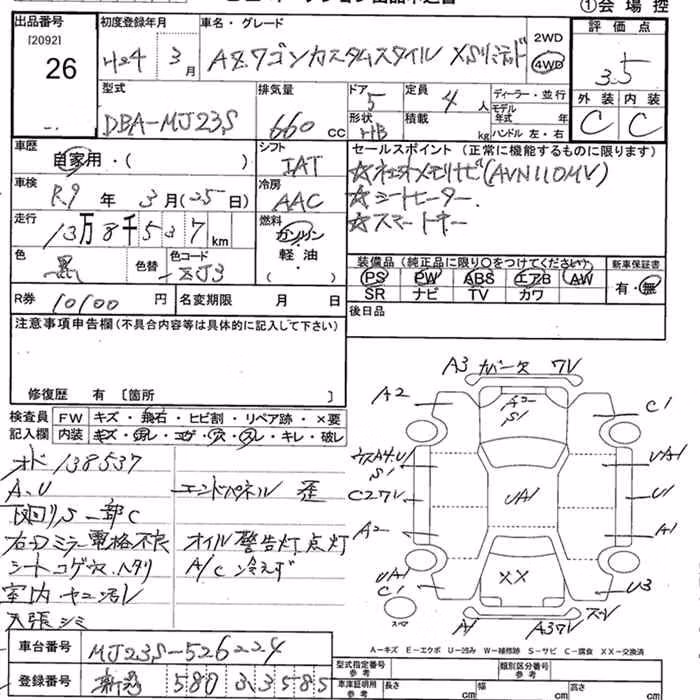 ①会場控
出品番号
[2092]
26
初度登録年月
H24年 3月
車名・グレード
AZ.ワゴンカスタムスタイル XSリミテッド
2WD
4WD
評価点
3.5
型式
DBA-MJ23S
排気量
660 cc
ドア
5
形状
HB
定員
4人
積載
kg
ディーラー・並行
モデル年式 年
ハンドル 左・右
外装 内装
C C
車歴
自家用・( )
シフト
IAT
セールスポイント (正常に機能するものに限ります)
☆ネオメモリナビ(AVN110MV)
☆シートヒーター
☆スマートキー
車検
R.9年 3月(25日)
冷房
AAC
走行
13万8千537km
燃料
ガソリン
軽油
( )
色
黒
色替
色コード
ZJ3
装備品 (純正品に限り○をつけてください)
PS PW ABS エアB AW
SR ナビ TV カワ
新車保証書
有・無
R券 10100円
名変期限 月 日
後日品
注意事項申告欄(不具合内容等は具体的に記入して下さい)
修復歴 有 [箇所 ]
検査員記入欄
FW キズ・飛石・ヒビ割・リペア跡・×要
内装 キズ・汚レ・コゲ・穴・スレ・キレ・破レ
オド138537
A、U
下回りS 一部C
右ドアミラー電格不良
シートコゲ穴、ヘタリ
室内ヤニ汚レ
天張シミ
エンドパネル 歪
オイル警告灯点灯
A/C 冷えず
A3 カバー欠 ワレ
A2
A2
S1
C1
S1
UA1
C2ワレ
UA1
U1
A2
A1
UA1
C1
XX
U3
スペア
A1
A3ワレ
A-キズ E-エクボ U-凹み W-補修跡 S-サビ C-腐食 XX-交換済
車台番号 MJ23S-526224
登録番号 580 3358
型式指定番号 参考
類別区分番号 参考
車庫証明用 参考
長さ cm 幅 cm 高さ cm